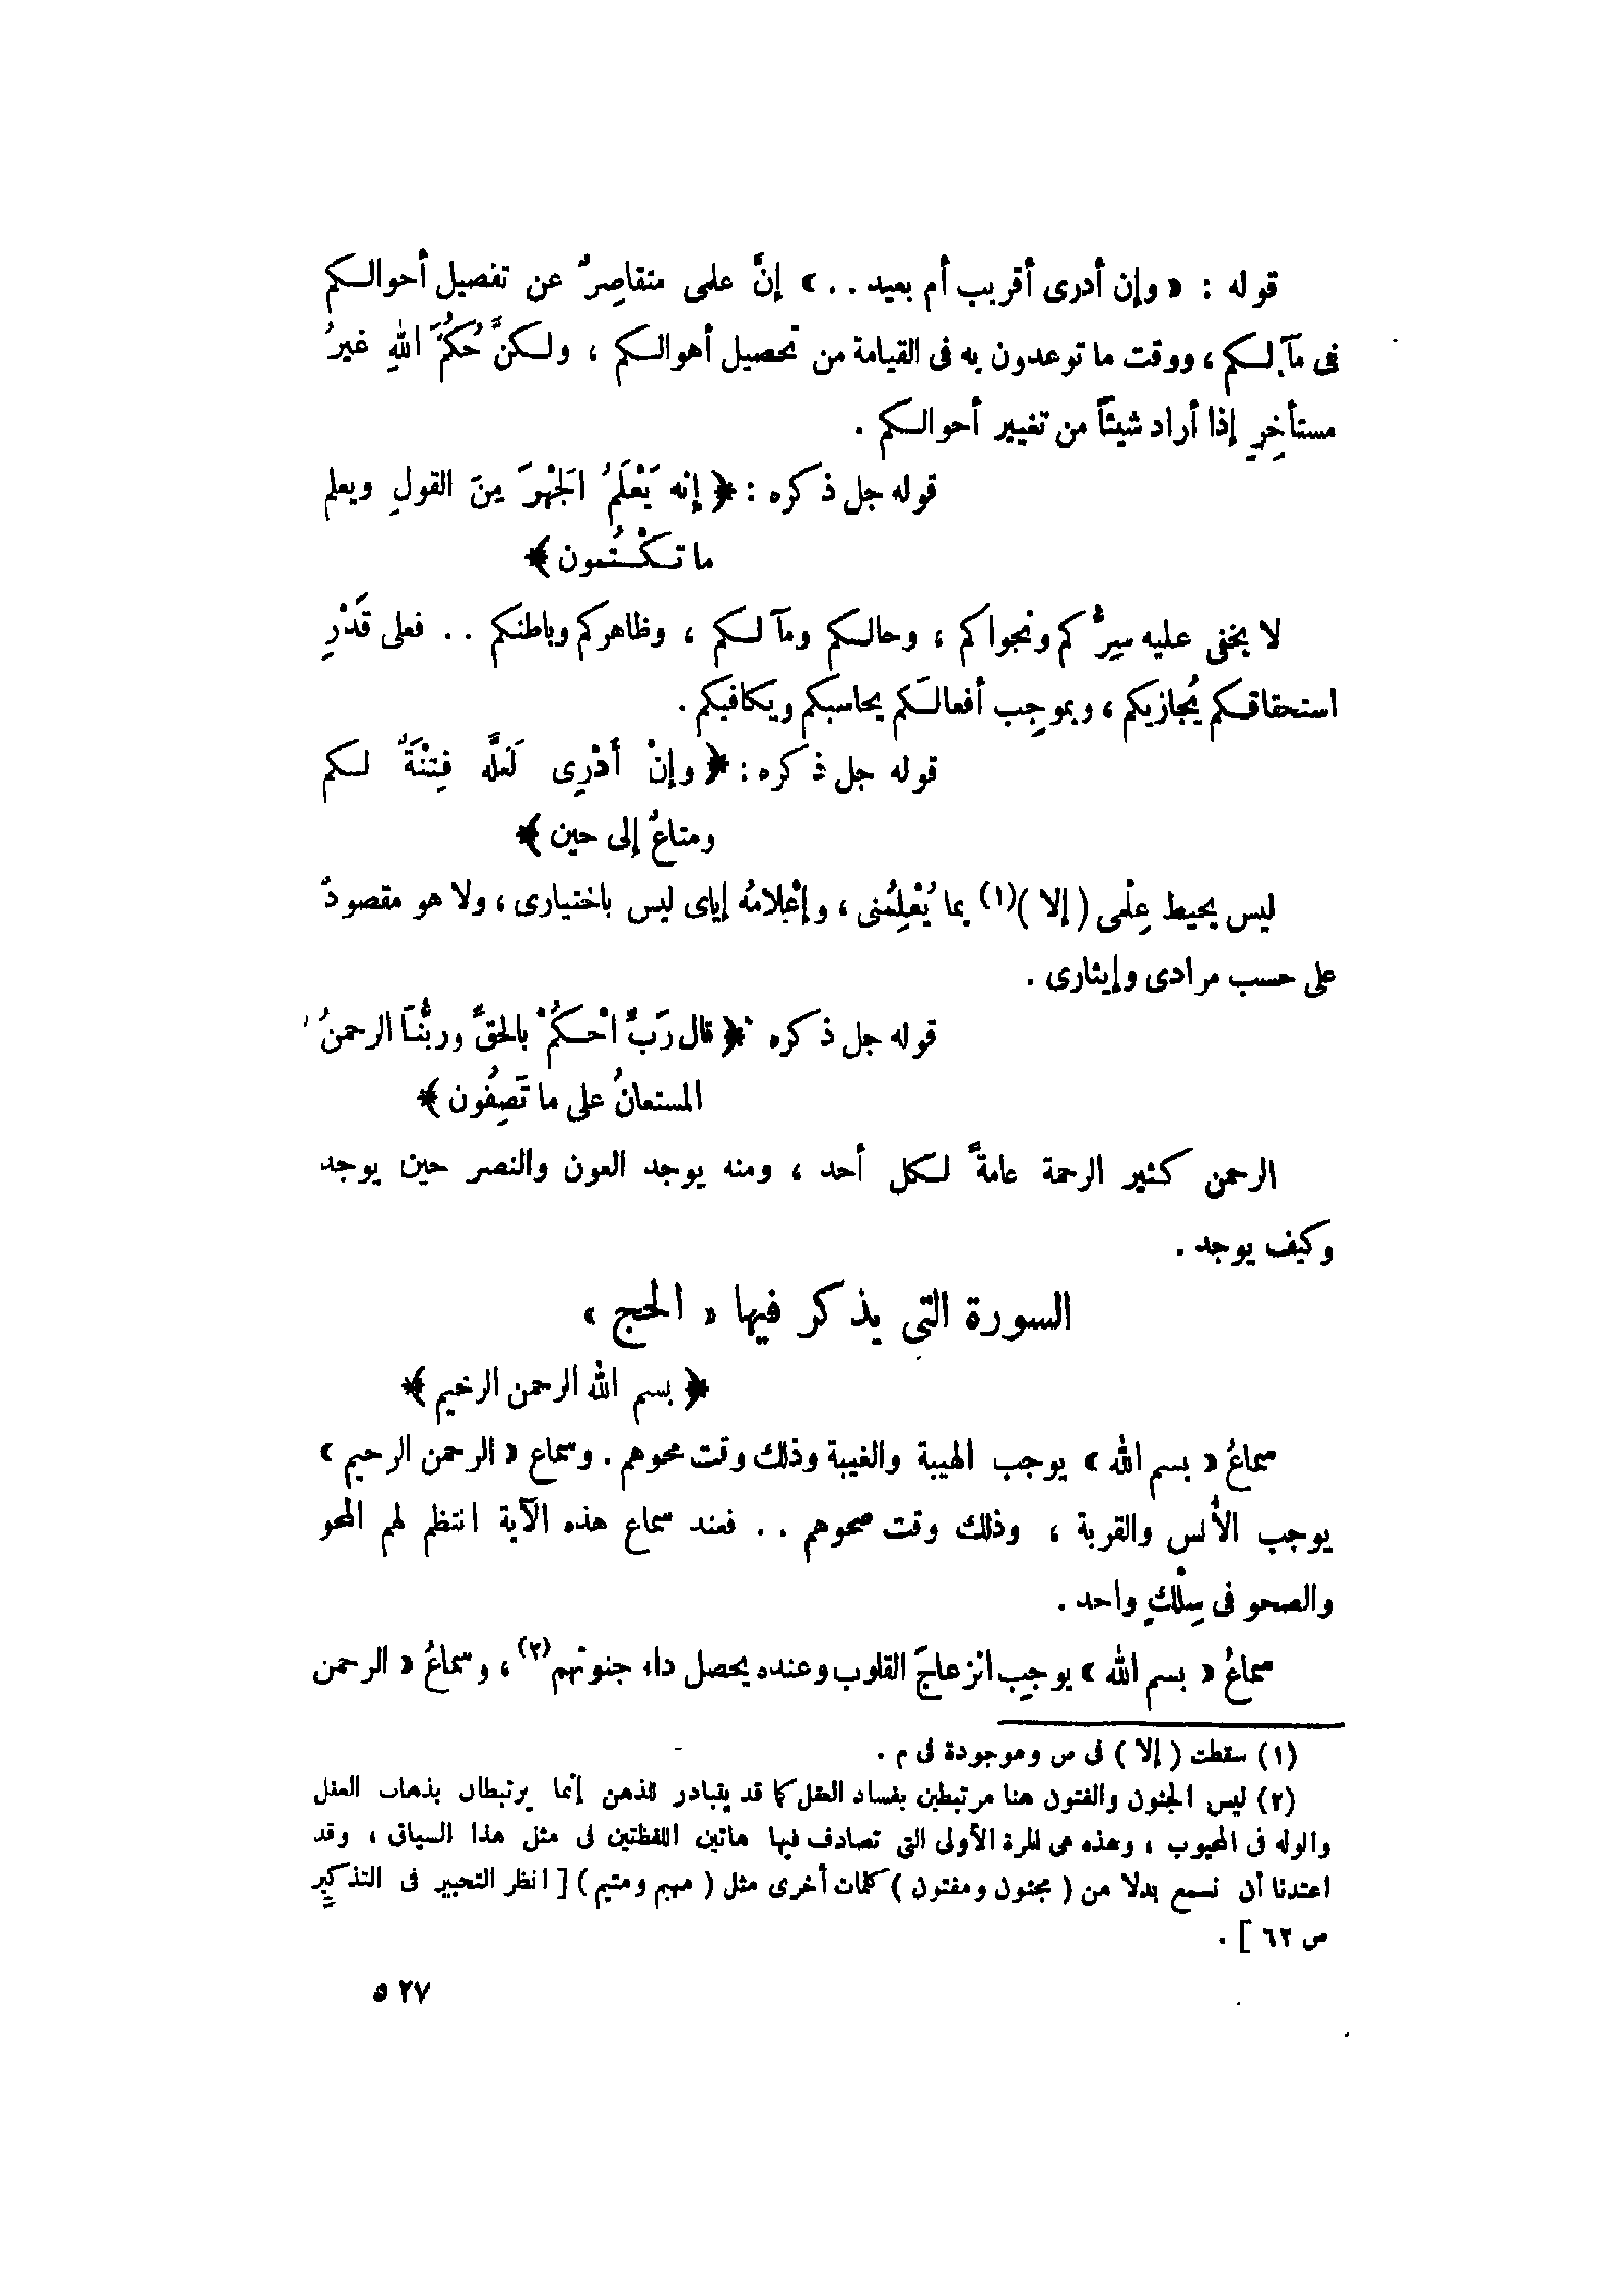 قوله : « وإن أدرى أقريب أم بعيد . . » إنَّ علمى متقاصِرٌ عن تفصيل أحوالكم
فى مآلكم ، ووقت ما توعدون به فى القيامة من تحصيل أهوالكم ، ولكنَّ حُكْمَ اللهِ غيرُ
مستأخِرٍ إذا أراد شيئاً من تغيير أحوالكم .
قوله جل ذكره : ﴿ إنه يَعْلَمُ الجَهْرَ مِنَ القولِ ويعلم
ما تكْتُمون ﴾
لا يخفى عليه سِرُّكم ونجواكم ، وحالكم ومآلكم ، وظاهركم وباطنكم . . فعلى قَدْرِ
استحقاقكم يُجازيكم ، وبموجِب أفعالكم يحاسبكم ويكافيكم .
قوله جل ذكره : ﴿ وإنْ أدْرِى لَعلَّه فِتْنَةٌ لكم
ومتاعٌ إلى حين ﴾
ليس يحيط عِلْمى ( إلا )(١) بما يُعْلِمُنى ، وإعْلامُه إياى ليس باختيارى ، ولا هو مقصودٌ
على حسب مرادى وإيثارى .
قوله جل ذكره ﴿ قال رَبِّ احْكُمْ بالحقِّ وربُّنَا الرحمنُ
المستعانُ على ما تَصِفُون ﴾
الرحمن كثير الرحمة عامةً لكل أحد ، ومنه يوجد العون والنصر حين يوجد
وكيف يوجد .
السورة التى يذكر فيها « الحج »
﴿ بسم الله الرحمن الرحيم ﴾
سماعُ « بسم الله » يوجب الهيبة والغيبة وذلك وقت محوهم . وسماع « الرحمن الرحيم »
يوجب الأُنس والقربة ، وذلك وقت صحوهم . . فعند سماع هذه الآية انتظم لهم المحو
والصحو فى سِلْكٍ واحد .
سماعُ « بسم الله » يوجِب انزعاجَ القلوب وعنده يحصل داء جنونهم(٢) ، وسماعُ « الرحمن
(١) سقطت ( إلا ) فى ص وموجودة فى م .
(٢) ليس الجنون والفتون هنا مرتبطين بفساد العقل كما قد يتبادر للذهن إنما يرتبطان بذهاب العقل
والوله فى المحبوب ، وهذه هى المرة الأولى التى تصادف فيها هاتين اللفظتين فى مثل هذا السياق ، وقد
اعتدنا أن نسمع بدلا من ( مجنون ومفتون ) كلمات أخرى مثل ( مهيم ومتيم ) [ انظر التحبير فى التذكير
ص ٦٢ ] .
٥٢٧